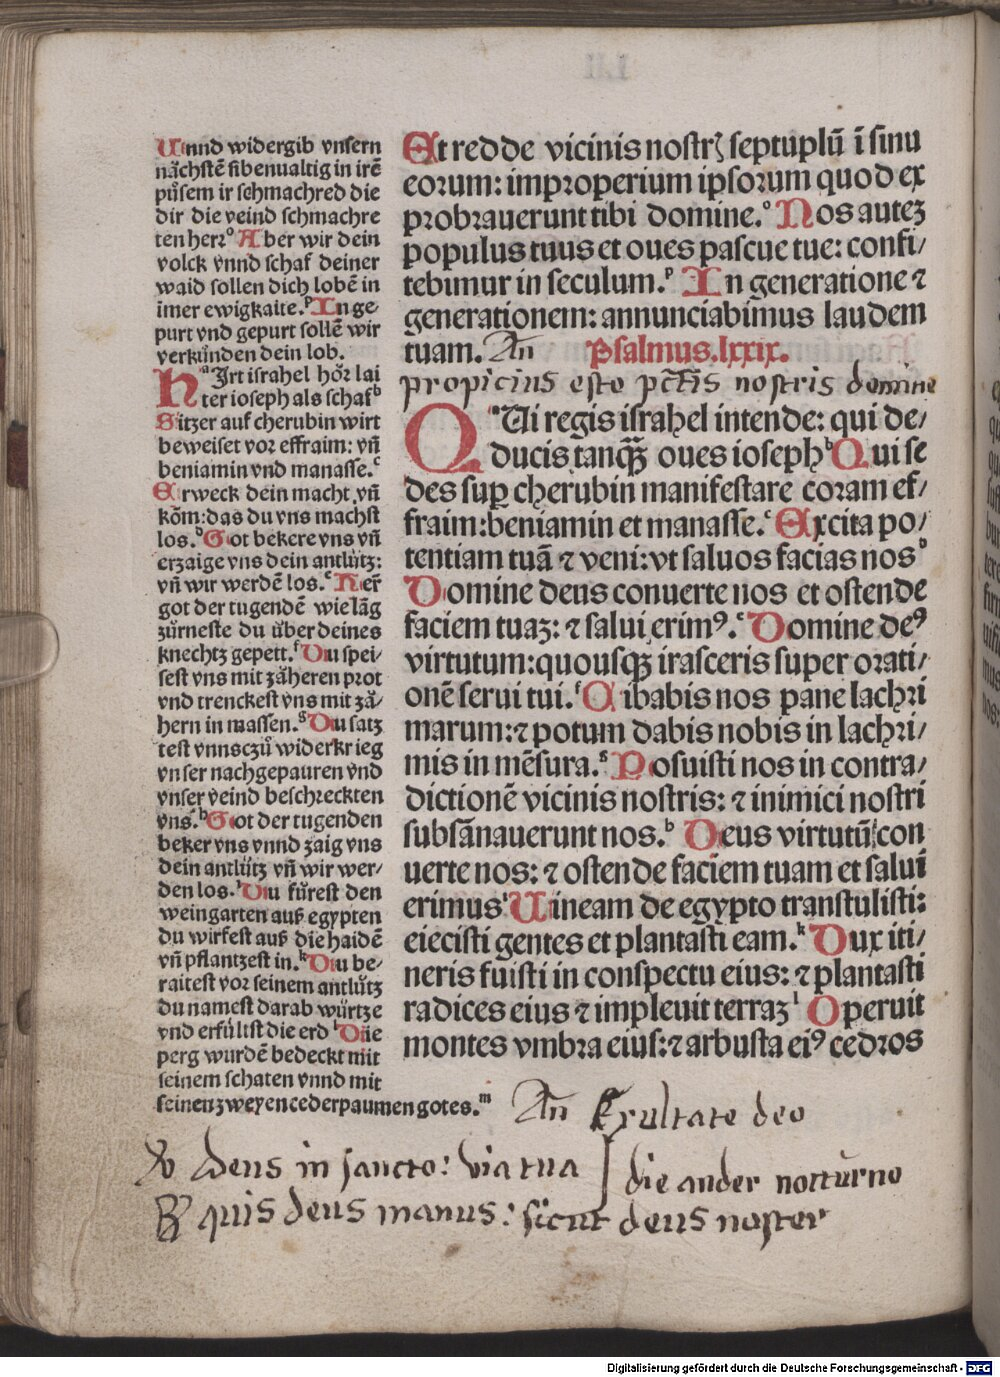 Unnd widergib vnsern
nåchstē sibenualtig in irē
půsem ir schmachred die
dir die veind schmachre
ten herꝛᵒ Aber wir dein
volck vnnd schaf deiner
waid sollen dich lobē in
imer ewigkaite.ᵖ In ge-
purt vnd gepurt sollē wir
verkünden dein lob.
Hᵃ Jrt israhel hőr lai
ter ioseph als schafᵇ
Sitzer auf cherubin wirt
beweiset voꝛ effraim: vn̄
beniamin vnd manasse.ᶜ
Erweck dein macht vn̄
kōm: das du vns machst
los.ᵈ Got bekere vns vn̄
erzaige vns dein antlütz:
vn̄ wir werdē los.ᵉ Her̄
got der tugendē wie lāg
zürneste du über deines
knechtz gepett.ᶠ Du spei-
sest vns mit zåheren prot
vnd trenckest vns mit zå-
hern in massen.ᵍ Du satz
test vnns czů widerkrieg
vnser nachgepauren vnd
vnser veind beschreckten
vns.ʰ Got der tugenden
beker vns vnnd zaig vns
dein antlütz vn̄ wir wer-
den los.ⁱ Du fürest den
weingarten auß egypten
du wirfest auß die haidē
vn̄ pflantzest in.ᵏ Du be-
raitest voꝛ seinem antlütz
du namest darab würtze
vnd erfültst die erd ˡ Die
perg wurdē bedeckt mit
seinem schaten vnnd mit
seinen zweyen cederpaumen gotes.ᵐ
Et redde vicinis nostrꝭ septuplū ī sinu
eorum: impꝛoperium ipsoꝛum quod ex
pꝛobꝛauerunt tibi domine.ᵒ Nos auteꝫ
populus tuus et oues pascue tue: confi/
tebimur in seculum.ᵖ In generatione ⁊
generationem: annunciabimus laudem
tuam. An Psalmus.lxxix.
propicius esto pctīs nostris domine
Qᵃ Ui regis israhel intende: qui de/
ducis tanqꝫ oues iosephᵇ Qui se
des suꝑ cherubin manifestare coꝛam ef/
fraim: beniamin et manasse.ᶜ Excita po/
tentiam tuā ⁊ veni: vt saluos facias nosᵈ
Domine deus conuerte nos et ostende
faciem tuaꝫ: ⁊ salui erimꝰ.ᵉ Domine deꝰ
virtutum: quousqꝫ irasceris super oꝛati/
onē serui tui.ᶠ Cibabis nos pane lachꝛi
marum: ⁊ potum dabis nobis in lachꝛi/
mis in mēsura.ᵍ Posuisti nos in contra/
dictionē vicinis nostris: ⁊ inimici nostri
subsānauerunt nos.ʰ Deus virtutū con
uerte nos: ⁊ ostende faciem tuam et salui
erimusⁱ Uineam de egypto transtulisti:
eiecisti gentes et plantasti eam.ᵏ Dux iti/
neris fuisti in conspectu eius: ⁊ plantasti
radices eius ⁊ impleuit terraꝫ ˡ Operuit
montes vmbꝛa eius: ⁊ arbusta eiꝰ cedꝛos
An Exultate deo
℣ deus in sancto: via tua
die ander notturno
℟ quis deus manus: sicut deus noster
Digitalisierung gefördert durch die Deutsche Forschungsgemeinschaft - DFG